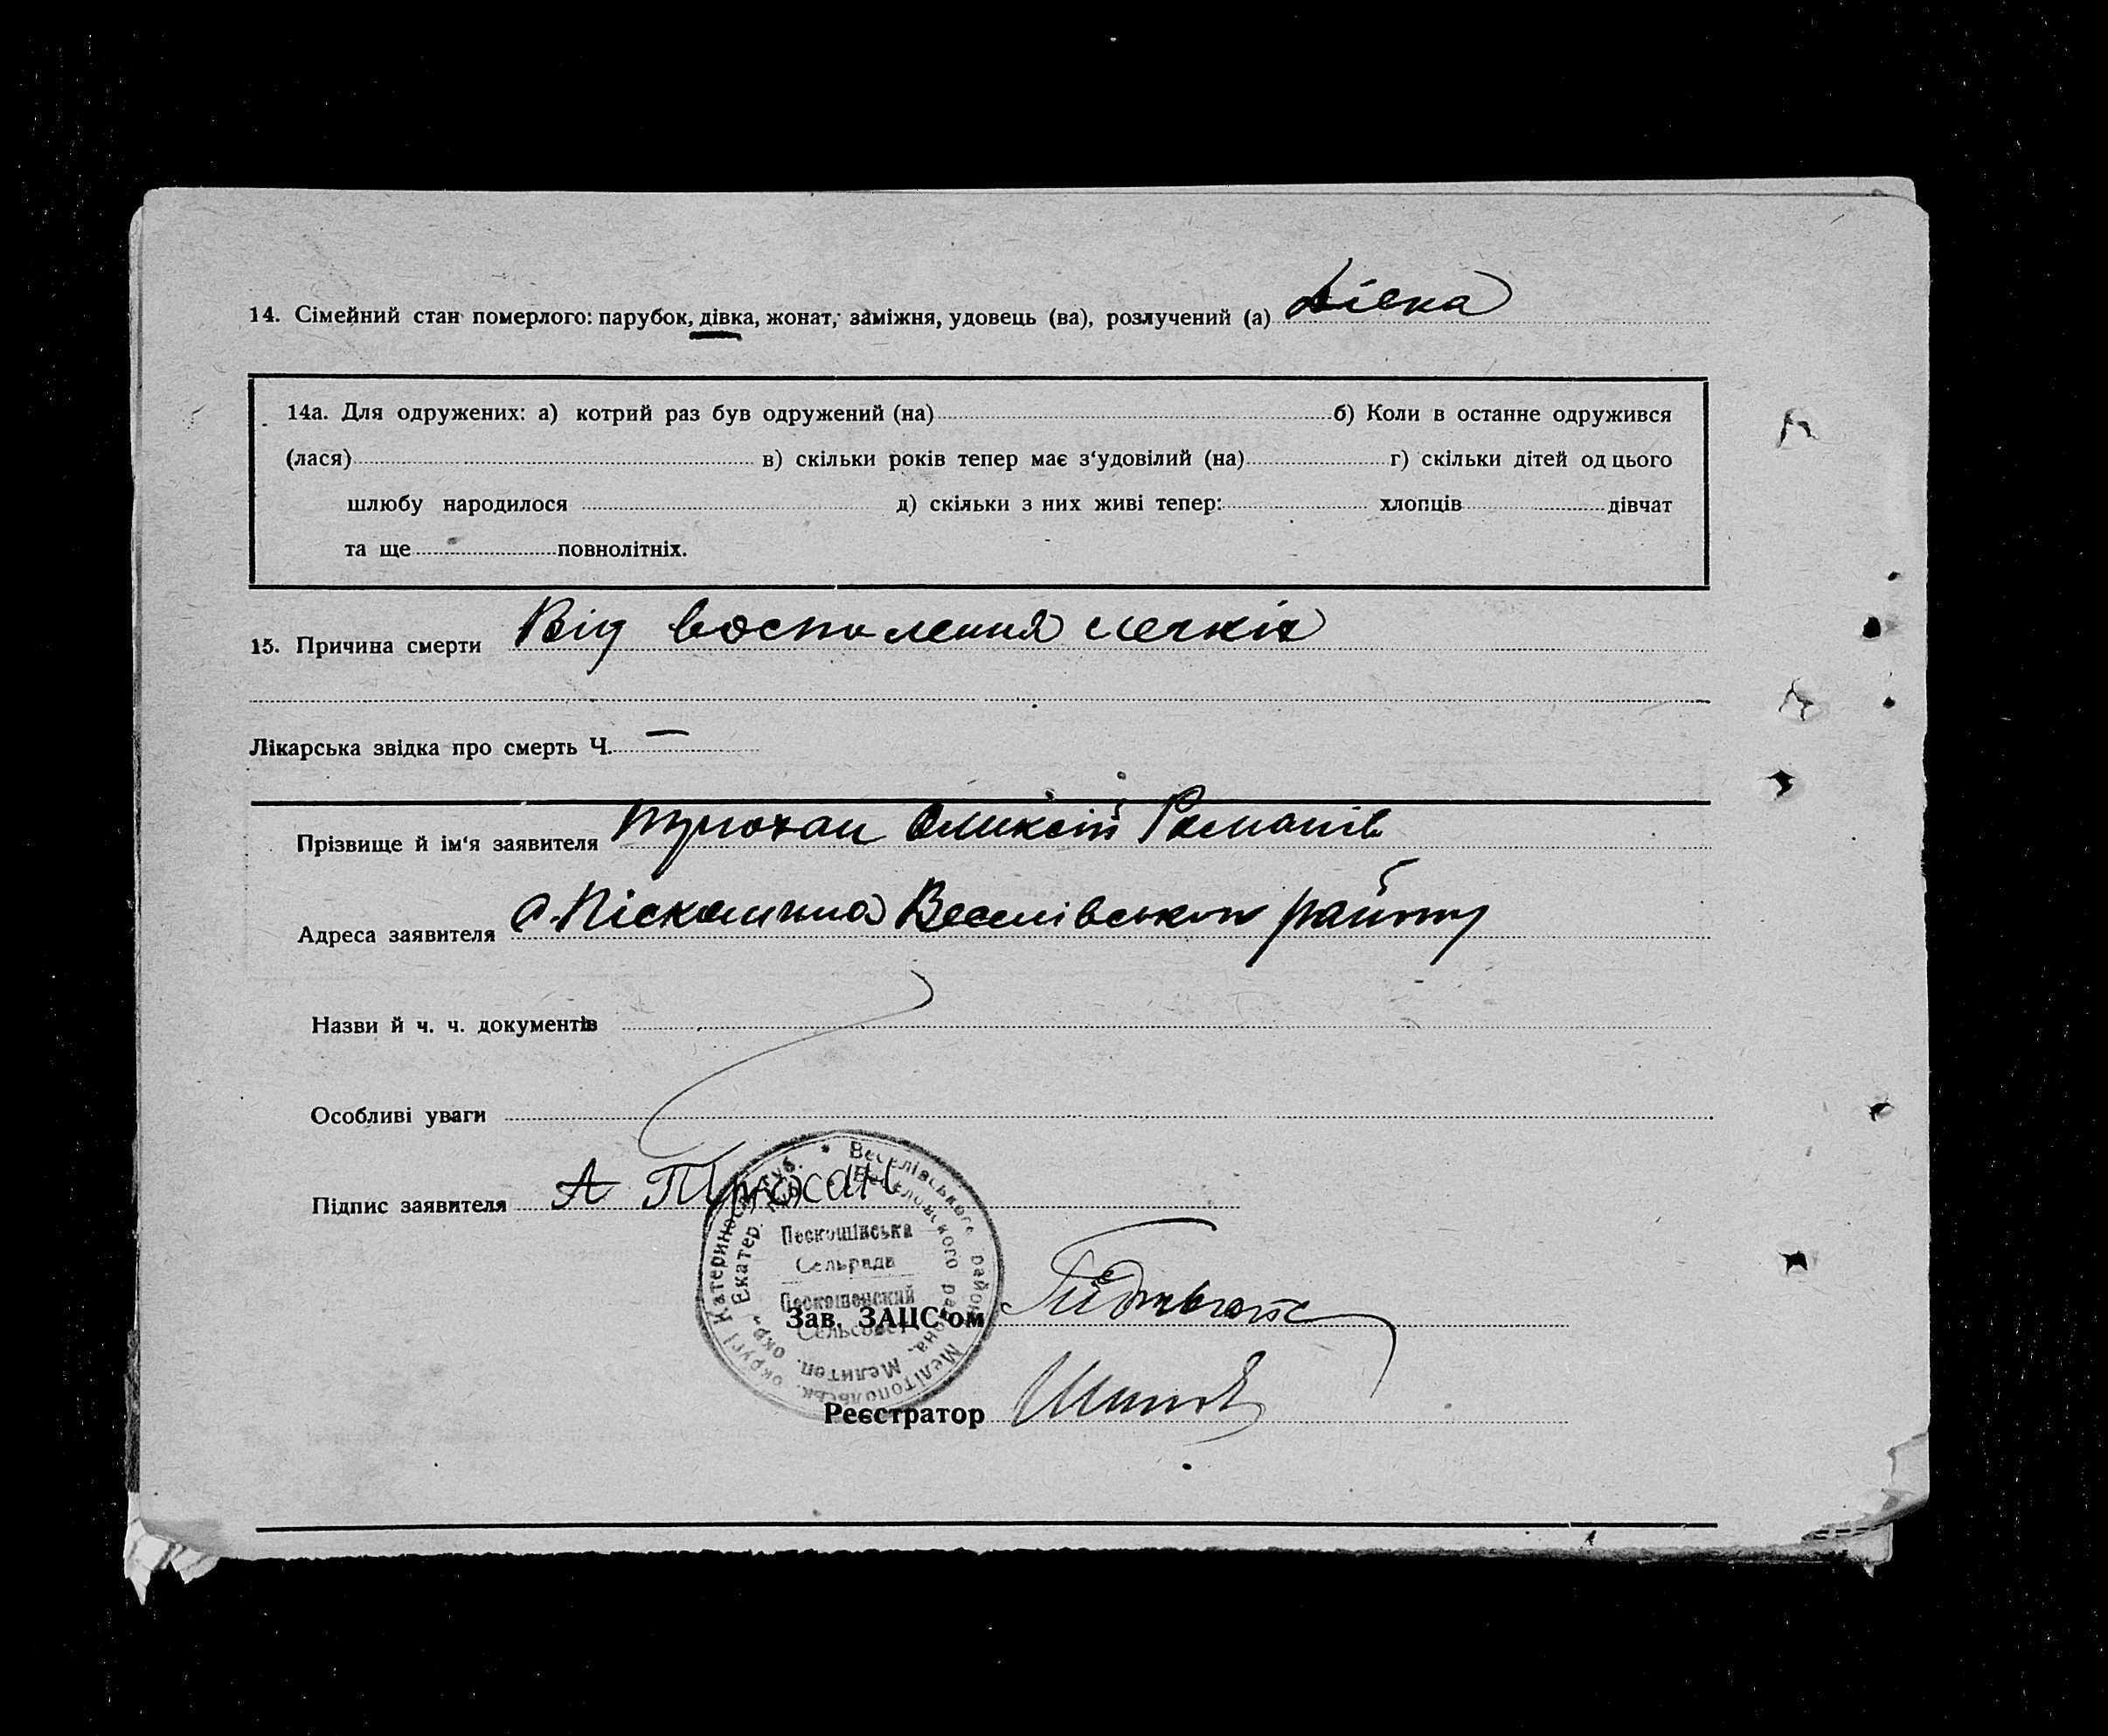 14. Сімейний стан померлого: парубок, дівка, жонат, заміжня, удовець (ва), розлучений (а) дівка
14а. Для одружених: а) котрий раз був одружений (на) б) Коли в останне одружився
(лася) в) скільки років тепер має з'удовілий (на) г) скільки дітей од цього
шлюбу народилося д) скільки з них живі тепер: хлопців дівчат
та ще повнолітніх.
15. Причина смерти Від воспалення легких
Лікарська звідка про смерть Ч. —
Прізвище й ім'я заявителя Романів
Адреса заявителя с. Веселівського району
Назви й ч. ч. документів
Особливі уваги
Підпис заявителя А
Веселівського району Мелітопольськ. округі Катеринос. губ.
Веселовского района, Мелитоп. окр., Екатер. губ.
Пескошінська
Сельрада
Пескошенский
Сельсовет
Зав. ЗАЦС'ом
Реєстратор